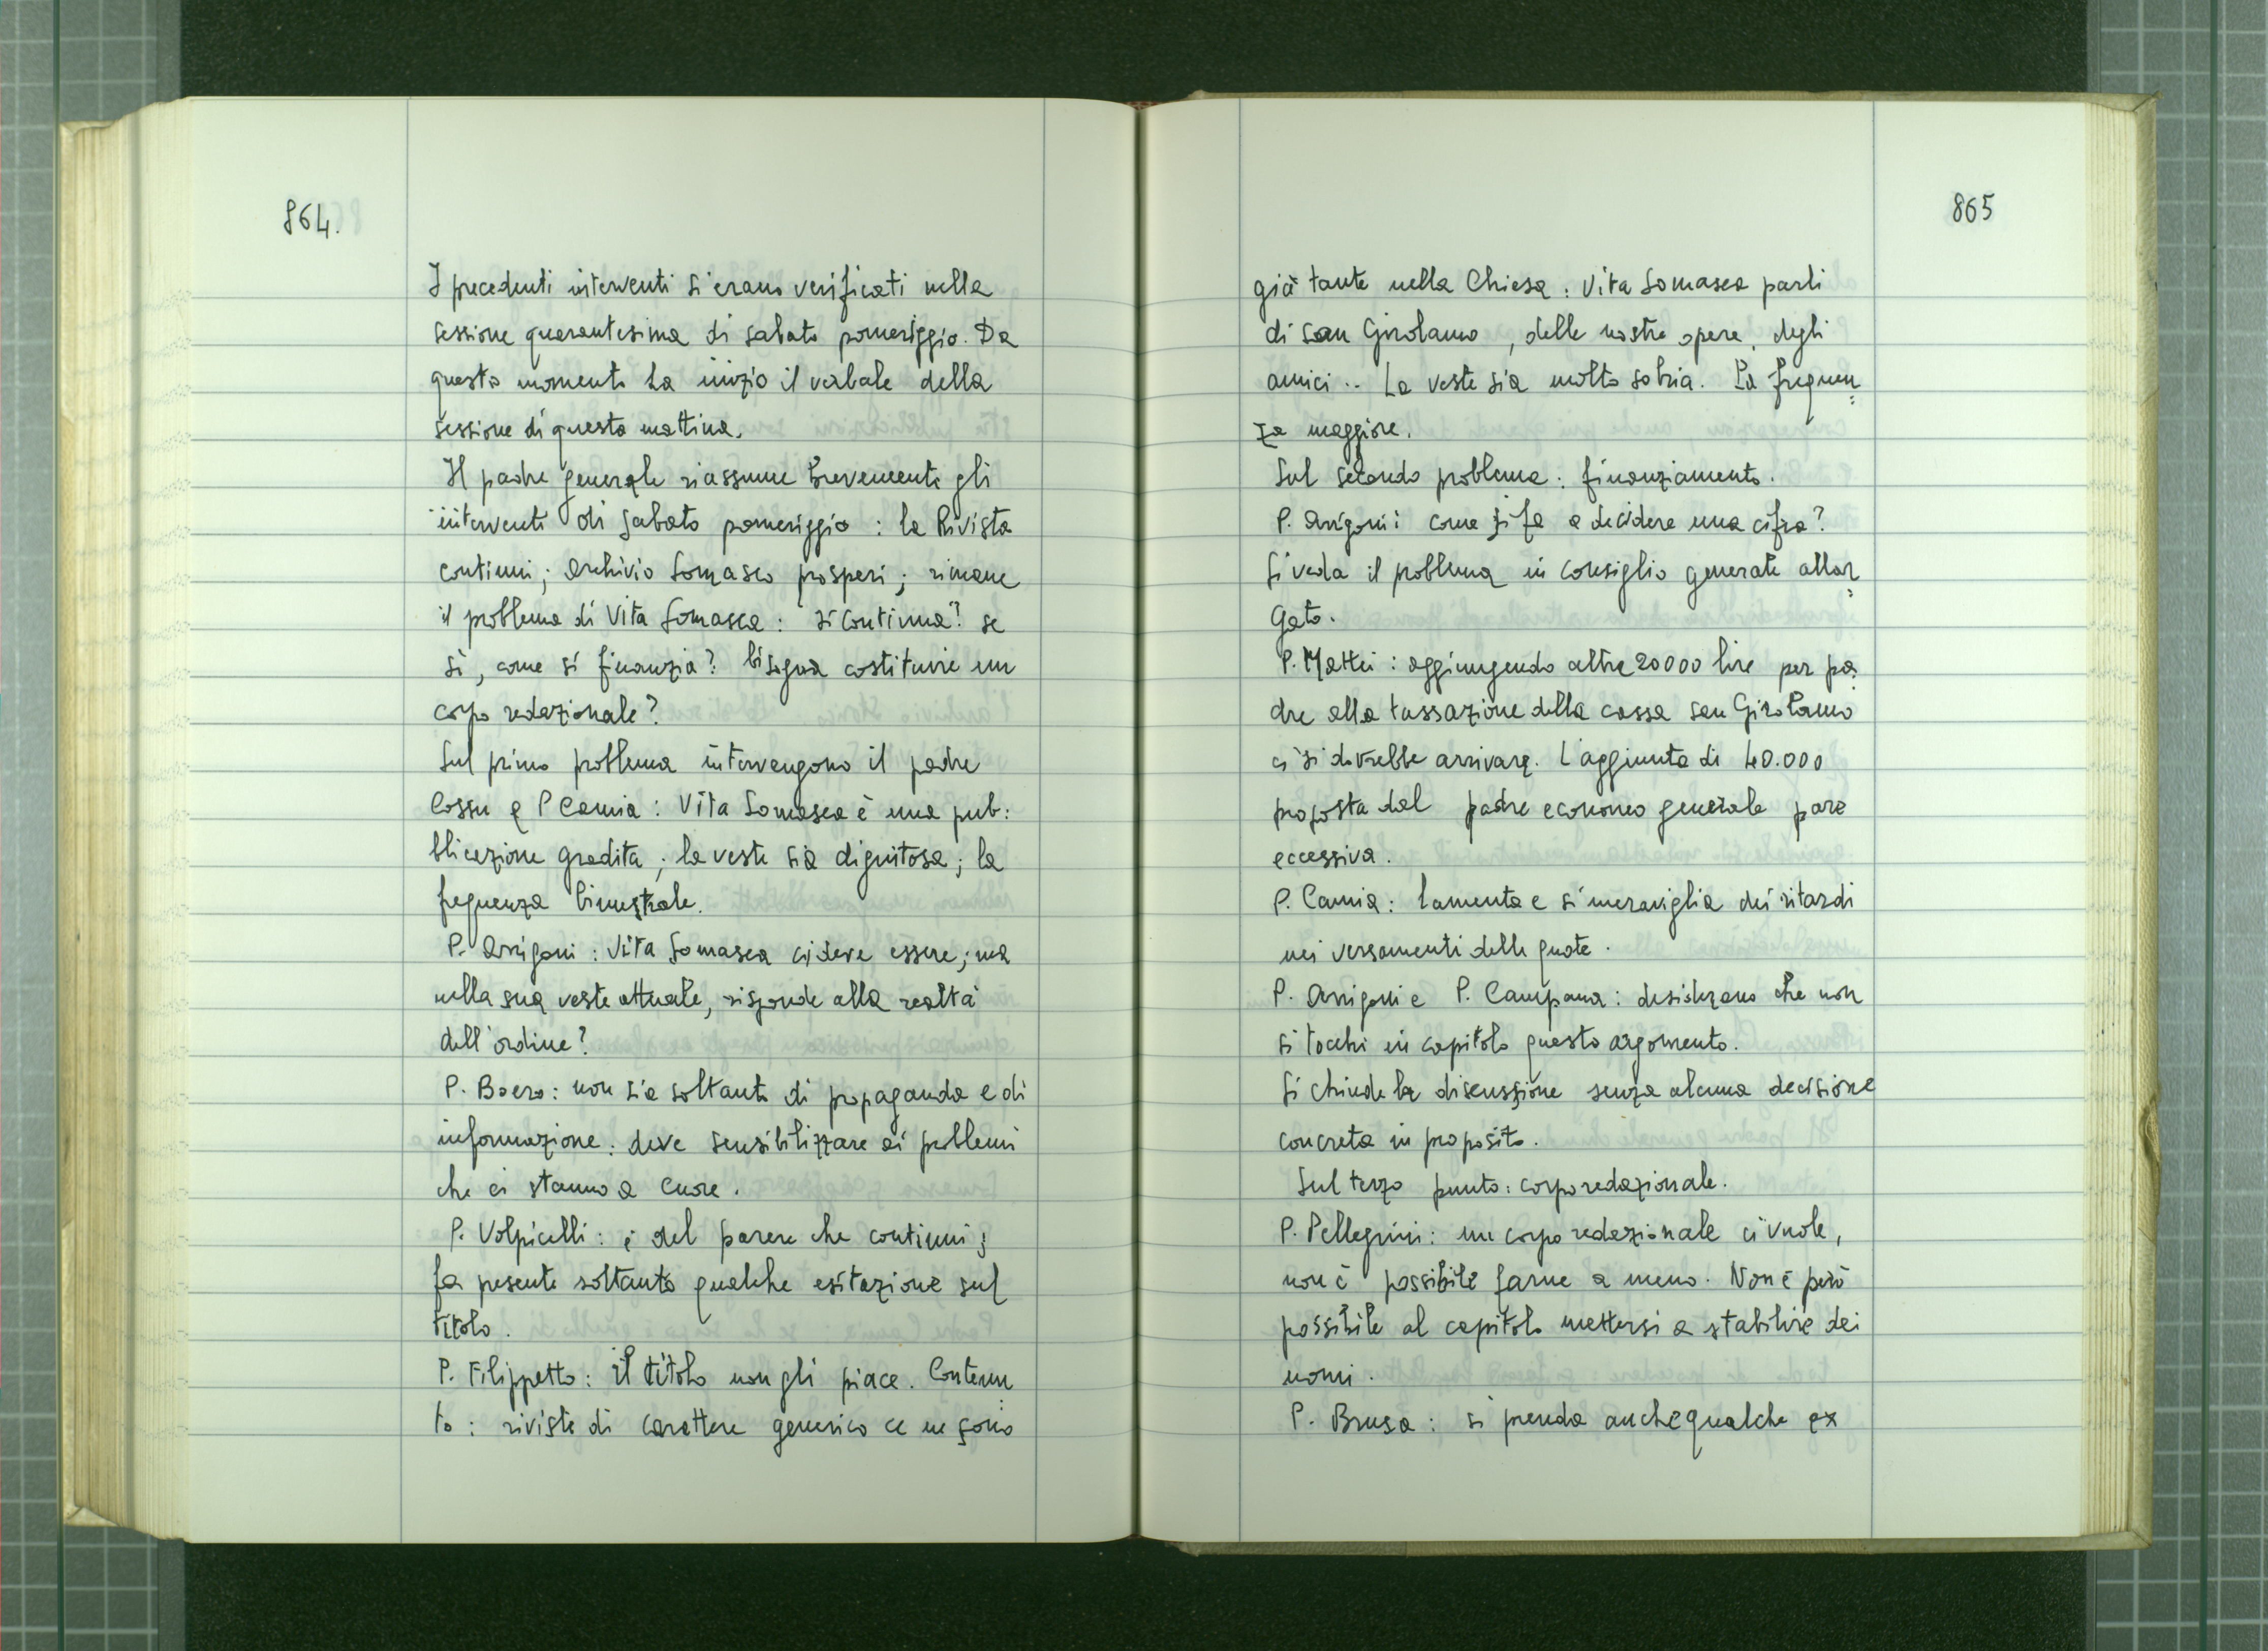 864.
I precedenti interventi si erano verificati nella
sessione quarantesima di sabato pomeriggio. Da
questo momento ha inizio il verbale della
sessione di questa mattina.
Il padre generale riassume brevemente gli
interventi di sabato pomeriggio : la Rivista
continui ; archivio Somasco prosperi ; rimane
il problema di Vita Somasca : si continua ? se
sì, come si finanzia ? bisogna costituire un
corpo redazionale ?
Sul primo problema intervengono il padre
Cossu e P Camia : Vita Somasca è una pub:
blicazione gradita ; la veste sia dignitosa ; la
frequenza bimestrale.
P. Arrigoni : Vita Somasca ci deve essere ; ma
nella sua veste attuale, risponde alla realtà
dell'ordine ?
P. Boero : non sia soltanto di propaganda e di
informazione : deve sensibilizzare ai problemi
che ci stanno a cuore.
P. Volpicelli : è del parere che continui ;
fa presente soltanto qualche esitazione sul
titolo.
P. Filippetto : il titolo non gli piace. Contenu
to : riviste di carattere generico ce ne sono
865
già tante nella Chiesa : Vita Somasca parli
di san Girolamo, delle nostre opere, degli
amici .. La veste sia molto sobria. La frequen
=
za maggiore.
Sul secondo problema : finanziamento.
P. Arrigoni : come si fa a decidere una cifra ?
Si veda il problema in consiglio generale allar
=
gato.
P. Mattei : aggiungendo altre 20000 lire per pa:
dre alla tassazione della cassa san Girolamo
ci si dovrebbe arrivare. L'aggiunta di 40.000
proposta dal padre economo generale pare
eccessiva.
P. Camia : lamenta e si meraviglia dei ritardi
nei versamenti delle quote.
P. Arrigoni e P. Campana : desiderano che non
si tocchi in capitolo questo argomento.
Si chiude la discussione senza alcuna decisione
concreta in proposito.
Sul terzo punto : corpo redazionale.
P. Pellegrini : un corpo redazionale ci vuole,
non è possibile farne a meno. Non è però
possibile al capitolo mettersi a stabilire dei
nomi.
P. Brusa : si prenda anche qualche ex